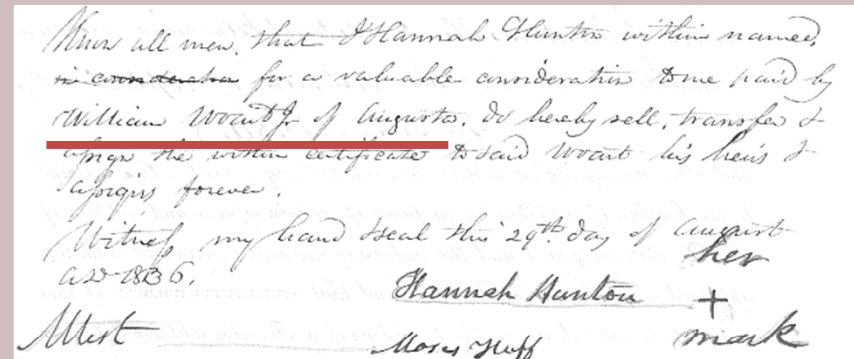 Know all men, that I Hannah Hunton within named,
in consideration for a valuable consideration to me paid by
William Woart Jr of Augusta, do hereby sell, transfer &
assign the within certificate to said Woart his heirs &
assigns forever
Witness my hand & seal this 29th day of August
AD 1836.
her
Hannah Hunton +
mark
Attest
Moses Huff